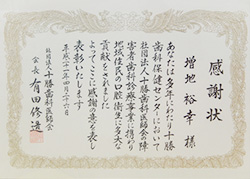 感謝状
増地裕幸様
あなたは多年にわたり十勝
歯科保健センターにおいて
社団法人十勝歯科医師会の障
害者歯科診療事業に携わり
地域住民の口腔衛生に多大な
貢献をされました
よってここに感謝の意を表し
表彰いたします
平成二十一年四月二十六日
社団法人十勝歯科医師会
会長 有田修造